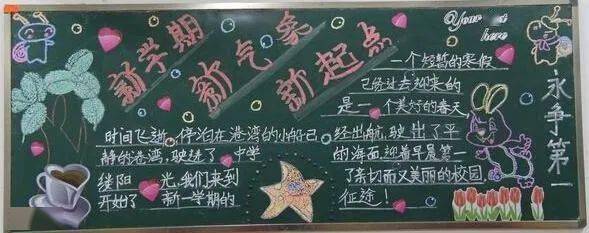 新学期
新气象
新起点
Your
here
一个短暂的寒假
已经过去迎来的
是一个美好的春天
时间飞逝,停泊在港湾的小船已经出航,驶出了平
静的港湾,驶进了 中学 的海面,迎着早晨第一
缕阳 光,我们来到了亲切而又美丽的校园,
开始了 新一学期的征途!
永争第一